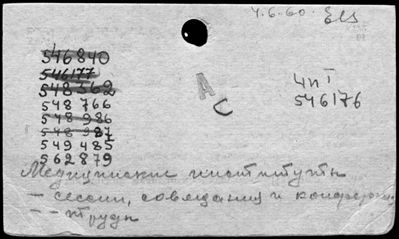 4.6.60.
546840
546177
548362
548766
548986
548987
549485
562879
АС
4п I
546176
Медицинские институты
— сессии, совещания и конферен.
— — труды